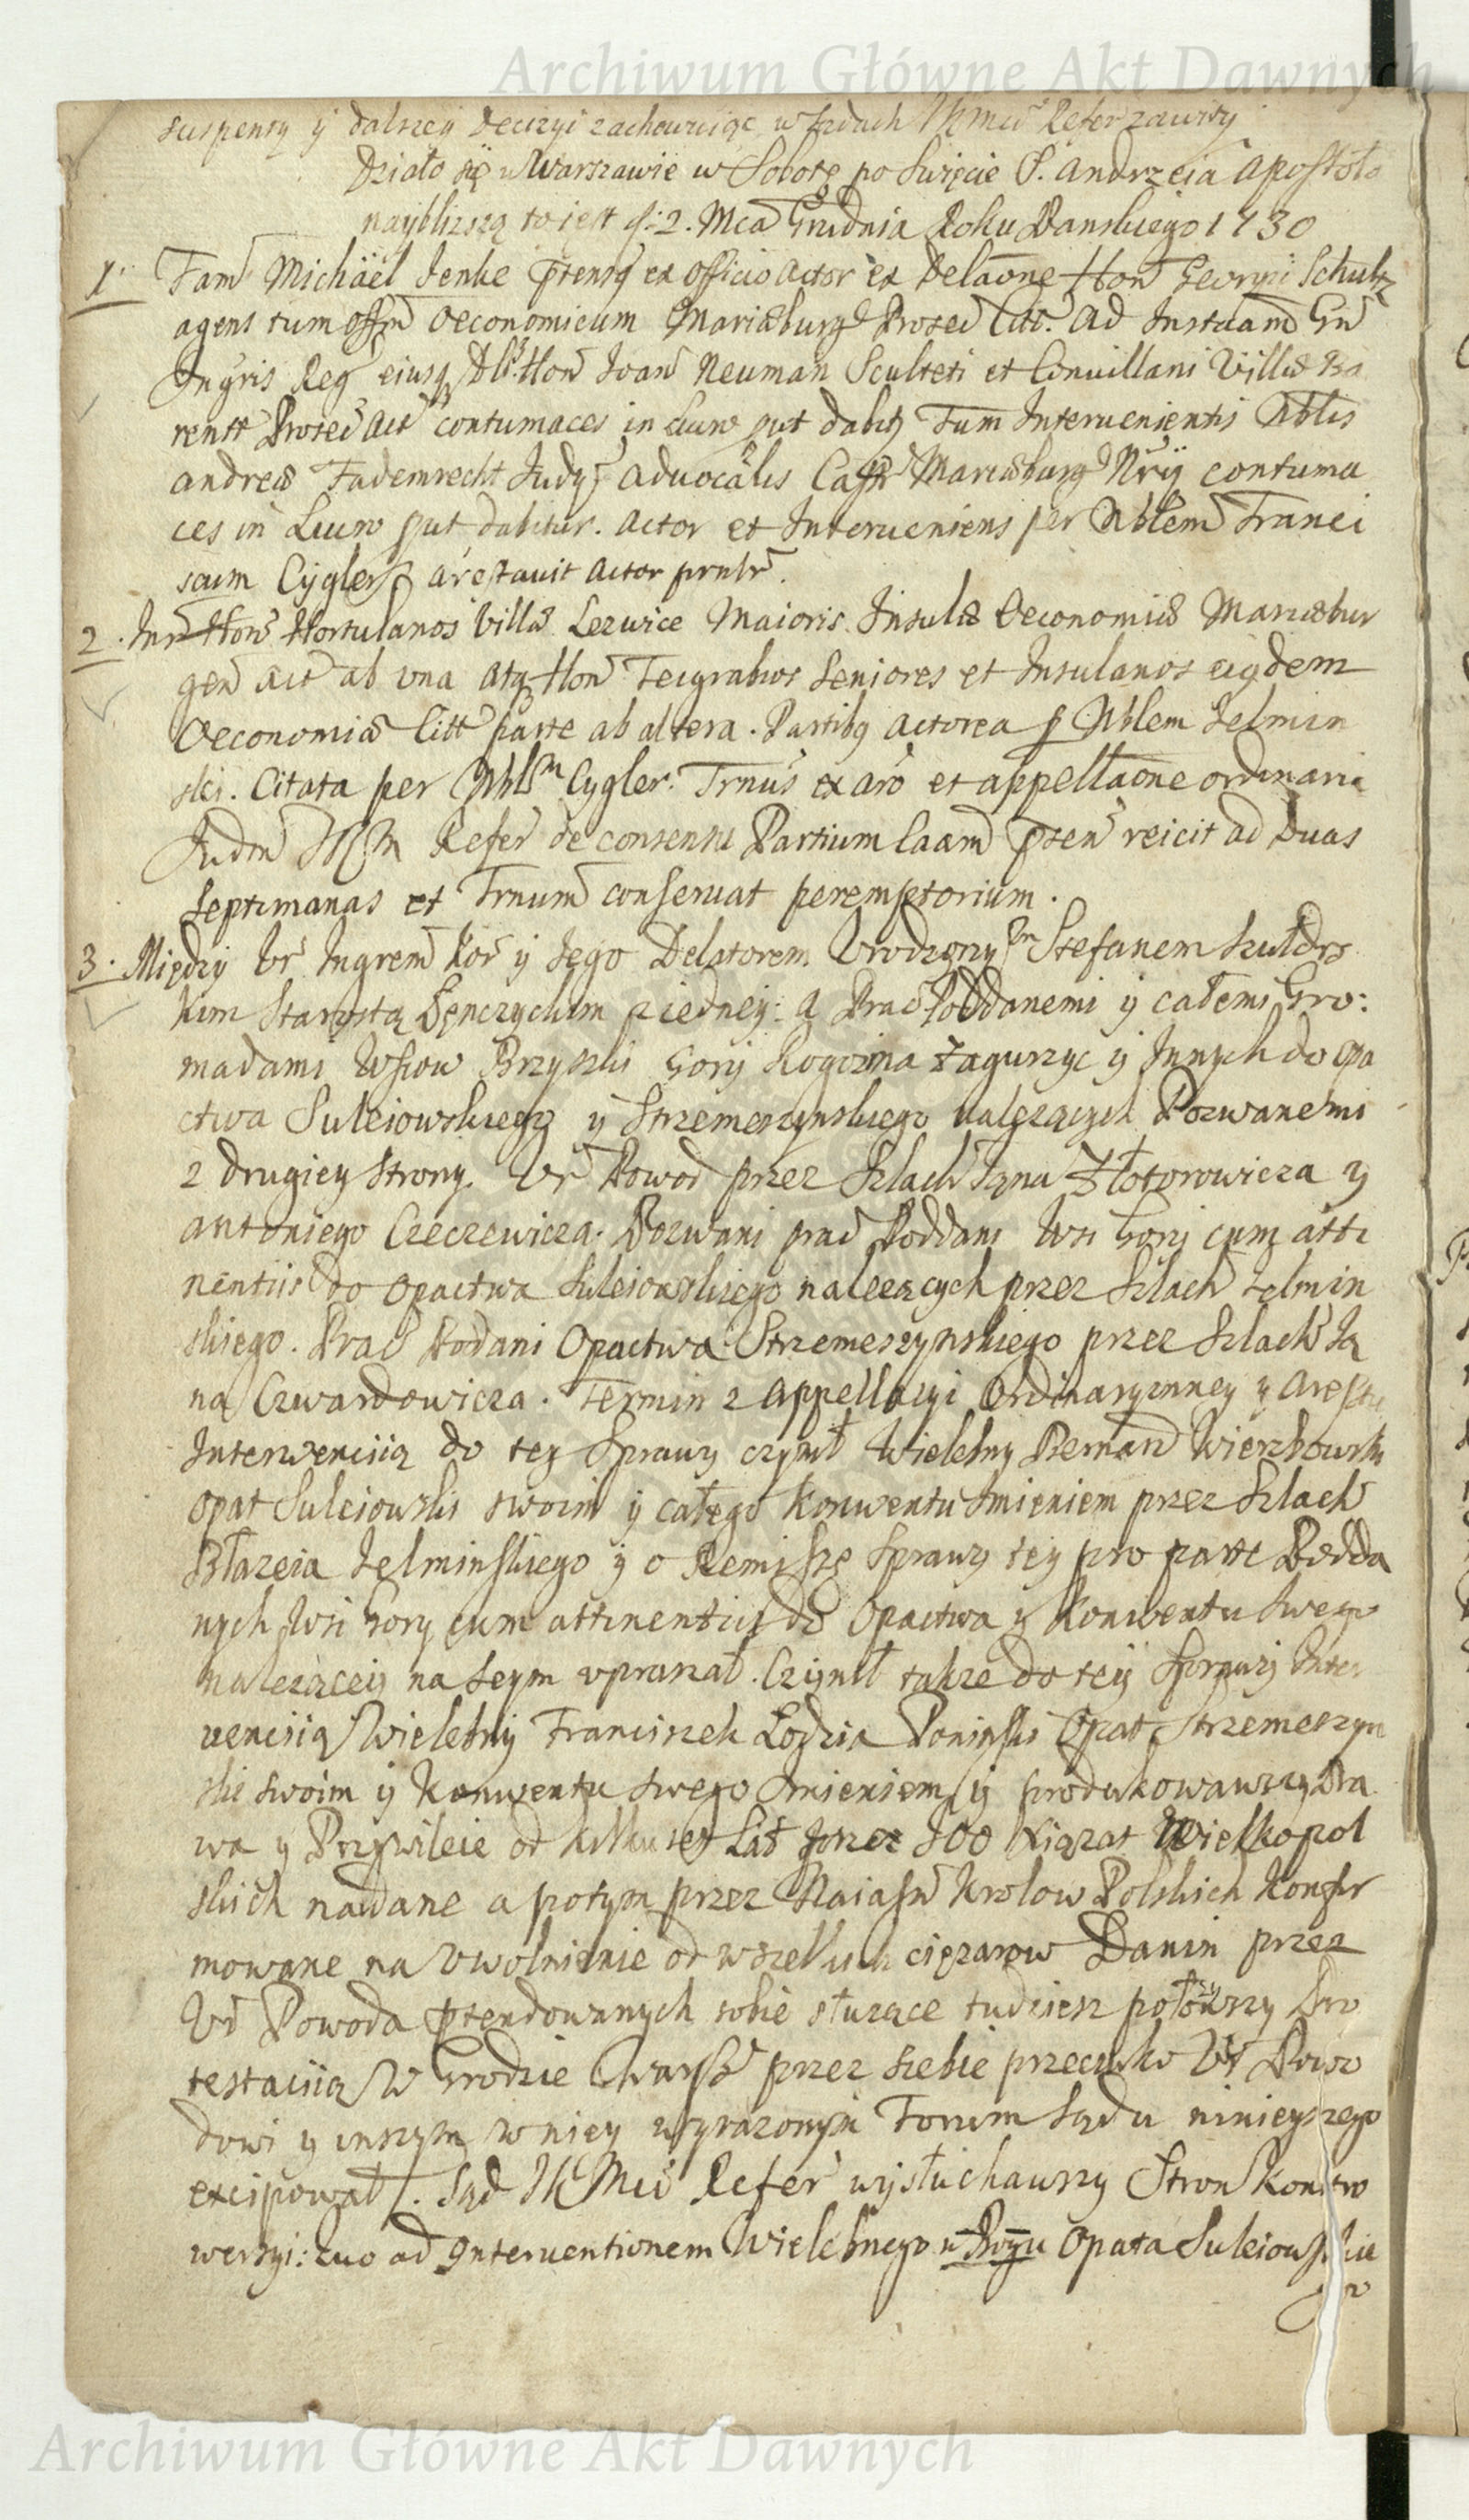 Archiwum Główne Akt Dawnych
suspensy y dalszey decizyi zachowuiąc w Sądach Refer zawisy
Działo się w Warszawie w Sobotę po Swięcie S. Andrzeia Apostoła
naybliższą to iest d: 2. Mca Grudnia Roku Panskiego 1730
1. Fam Michäel Jenke ptensq ex officio Actor ex Delaōne Hon Georgii Schultz
agens tum Offm Oeconomicum Mariæburg Prosec Citt. Ad Instãam Gn
Ingris Reg eiusq Dlt. Hon Joan Neuman Sculteti et Convillani Villæ Ba
rentt Prosec Act contumaces in Lucro put dabitr Tum Intervenientis Nblis
Andreæ Fademrecht Judy Advocãlis Castr Mariæburg Nrij contuma
ces in Lucro put dabitur. Actor et Interveniens per Nblem Franci
scum Cygler arestavit Actor prntr.
2. Inr Hon Hortulanos Villæ Lezwice Maioris Insulæ Oeconomiæ Mariæbur
gen Act ab una atq Hon Teygrabios Seniores et Insulanos eiqdem
Oeconomiæ Citt parte ab altera. Partibq Actorea p Nblem Jelmin
ski. Citata per Nblm Cygler. Trnus ex aro et appellaōne ordinaria
Judm Refer de consensu Partium Caam pten reicit ad Duas
Septimanas et Trnum conservat peremptorium.
3. Między Ur Ingrem Kor y Jego Delatorem Urodzonym Stefanem Szułdrs
kim Starostą Łęnczyckim z iedney: a Prac Poddanemi y całemi Gro:
madami Wsiow Brzyszki Gory Rogozina Zagurzyc y Innych do Opa
ctwa Suleiowskiego y Strzemeszynskiego należących Pozwanemi
z drugiey strony. Ur Powod przez Szlach Jana Złotorowicza y
Antoniego Czeczewicza. Pozwani prac Poddani Wsi Gory cum atti
nentiis do Opactwa Suleiowskiego należących przez Szlach Jelmin
skiego. Prac Podani Opactwa Strzemeszynskiego przez Szlach Ja
na Czwardowicza. Termin z Appellacyi Ordinaryinney y Arestu
Interwenciią do tey Sprawy czynił Wielebny Bernard Wierzbowski
Opat Suleiowski swoim y całego Konwentu Imieniem przez Szlach
Błazeia Jelminskiego y o Remisszę Sprawy tey pro parte Podda
nych Wsi Gory cum attinentiis do Opactwa y Konwentu Swego
należącey na Seym upraszał. Czynił takze do tey Sprawy Inter
venciią Wielebny Franciszek Lodzia Poninski Opat Strzemeszyn
ski swoim y Konwentu swego Imieniem y produkowawszy Pra
wa y Przywileie od kilkuset Lat przez JOO Xiążat Wielkopol
skich nadane a potym przez Naiasn Krolow Polskich Konfir
mowane na Uwolnienie od wszelkich cięzarow Danin przez
Ur Powoda ptendowanych sobie służące tudziesz położywszy Pro
testaciią W Grodzie Warsz przez siebie przeciwko Ur Powo
dowi y inszym w niey wyrazonym Forum Sądu ninieyszego
excipował. Sąd Refer wysłuchawszy Stron Kontro
wersyi: quo ad Interventionem Wielebnego w Bogu Opata Suleiowskie
go
Archiwum Główne Akt Dawnych